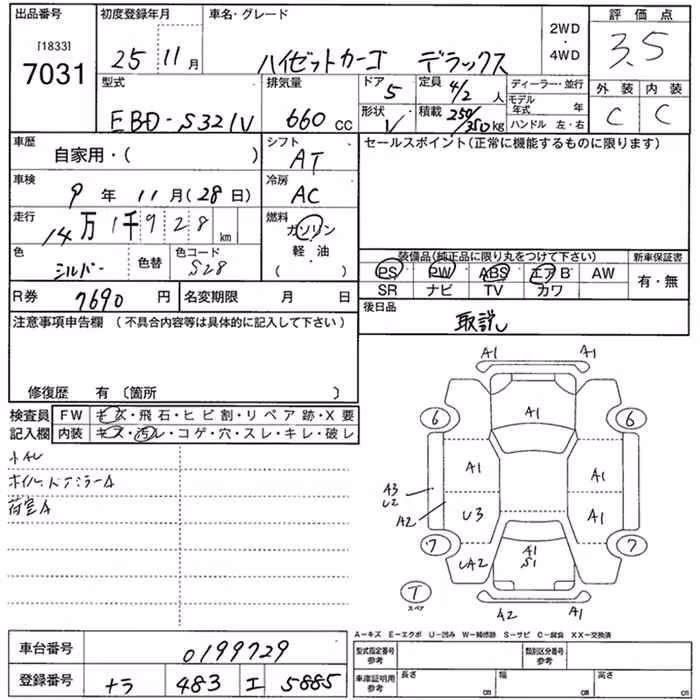 出品番号 初度登録年月 車名・グレード 2WD・4WD 評価点
[1833]
7031
25 11月 ハイゼットカーゴ デラックス 3.5
型式 排気量 ドア 5 定員 4/2人 ディーラー・並行 外装 内装
EBD-S321V 660cc 形状 V 積載 250/350kg モデル年式 年 C C
ハンドル 左・右
車歴 自家用・( ) シフト AT セールスポイント(正常に機能するものに限ります)
車検 9年 11月(28日) 冷房 AC
走行 14万1千928km 燃料 ガソリン
軽・油
( )
色 シルバー 色替 色コード S28
装備品(純正品に限り丸をつけて下さい) 新車保証書
PS PW ABS エアB AW 有・無
SR ナビ TV カワ
R券 7690円 名変期限 月 日 後日品 取説
注意事項申告欄 (不具合内容等は具体的に記入して下さい)
修復歴 有〔箇所 〕
検査員 FW キズ・飛石・ヒビ割・リペア跡・X要
記入欄 内装 キズ・汚レ・コゲ・穴・スレ・キレ・破レ
荷室A
A1 A1
6 A1 6
A1 A1
A3
U2
A2
U3 A1
7 A1 S1 7
UA2
T
スペア
A2 A1
A-キズ E-エクボ U-凹み W-補修跡 S-サビ C-腐食 XX-交換済
車台番号 0199729 型式指定番号 参考 類別区分番号 参考
登録番号 ナラ 483 エ 5885 車庫証明用 参考 長さ cm 幅 cm 高さ cm